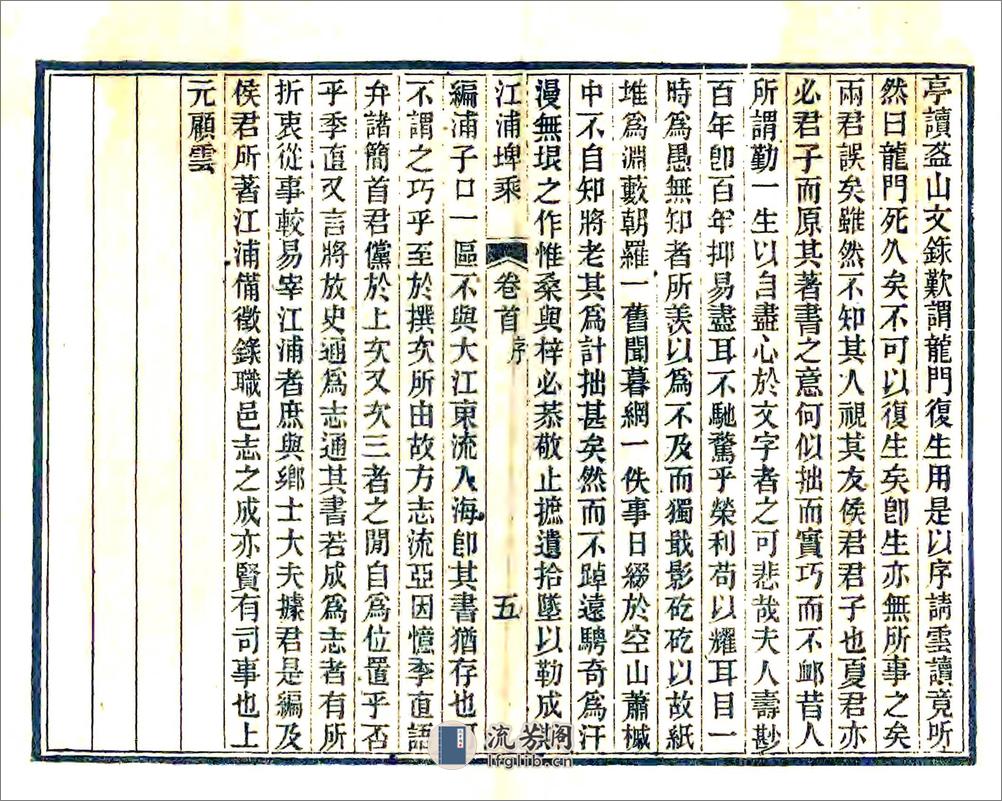 亭讀盋山文錄歎謂龍門復生用是以序請雲讀竟听
然曰龍門死久矣不可以復生矣卽生亦無所事之矣
兩君誤矣雖然不知其人視其友侯君君子也夏君亦
必君子而原其著書之意何似拙而實巧而不䘏昔人
所謂勤一生以自盡心於文字者之可悲哉夫人壽尠
百年卽百年抑易盡耳不馳騖乎榮利苟以耀耳目一
時爲愚無知者所羨以爲不及而獨戢影矻矻以故紙
堆爲淵藪朝羅一舊聞暮網一佚事日綴於空山蕭槭
中不自知將老其爲計拙甚矣然而不踔遠騁奇爲汗
漫無垠之作惟桑與梓必恭敬止摭遺拾墜以勒成
江浦埤乘
卷首
序
五
編浦子口一區不與大江東流入海卽其書猶存也
不謂之巧乎至於撰次所由故方志流亞因憶季直語
弁諸簡首君儻於上次又次三者之閒自爲位置乎否
乎季直又言將放史通爲志通其書若成爲志者有所
折衷從事較易宰江浦者庶與鄉士大夫據君是編及
侯君所著江浦備徵錄職邑志之成亦賢有司事也上
元顧雲
流芳阁
lfglib.cn